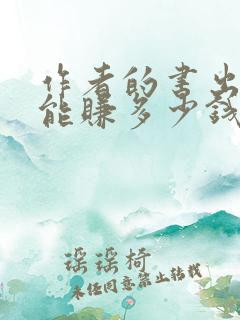 作者的书出
能赚多少钱
瑶瑶椅
未经同意禁止转载